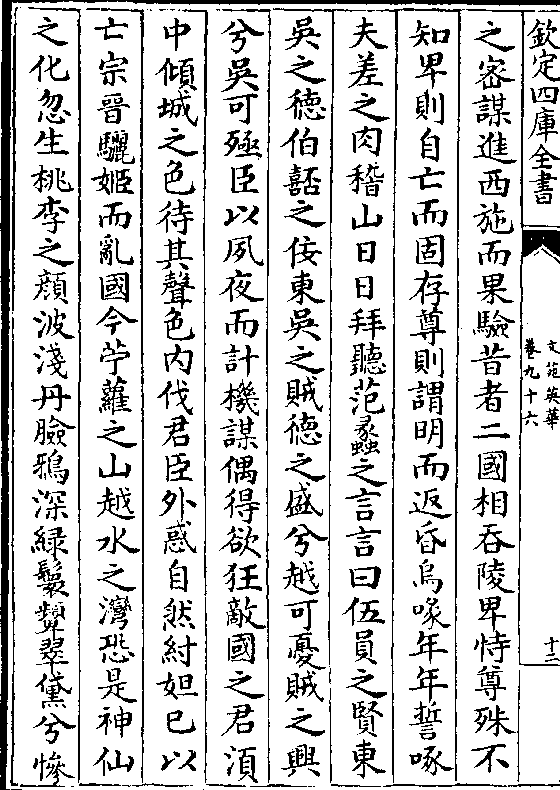 欽定四庫全書
文苑英華
卷九十六
十三
之宻謀進西施而果驗昔者二國相吞陵卑恃尊殊不
知卑則自亡而固存尊則謂明而返昏烏喙年年誓啄
夫差之肉稽山日日拜聽范蠡之言言曰伍員之賢東
吳之德伯嚭之佞東吳之賊德之盛兮越可憂賊之興
兮吳可殛臣以夙夜而計機謀偶得欲狂敵國之君湏
中傾城之色待其聲色内伐君臣外惑自然紂妲已以
亡宗晉驪姬而亂國今苧蘿之山越水之灣恐是神仙
之化忽生桃李之顔波淺丹臉鴉深緑鬟顰翠黛兮慘